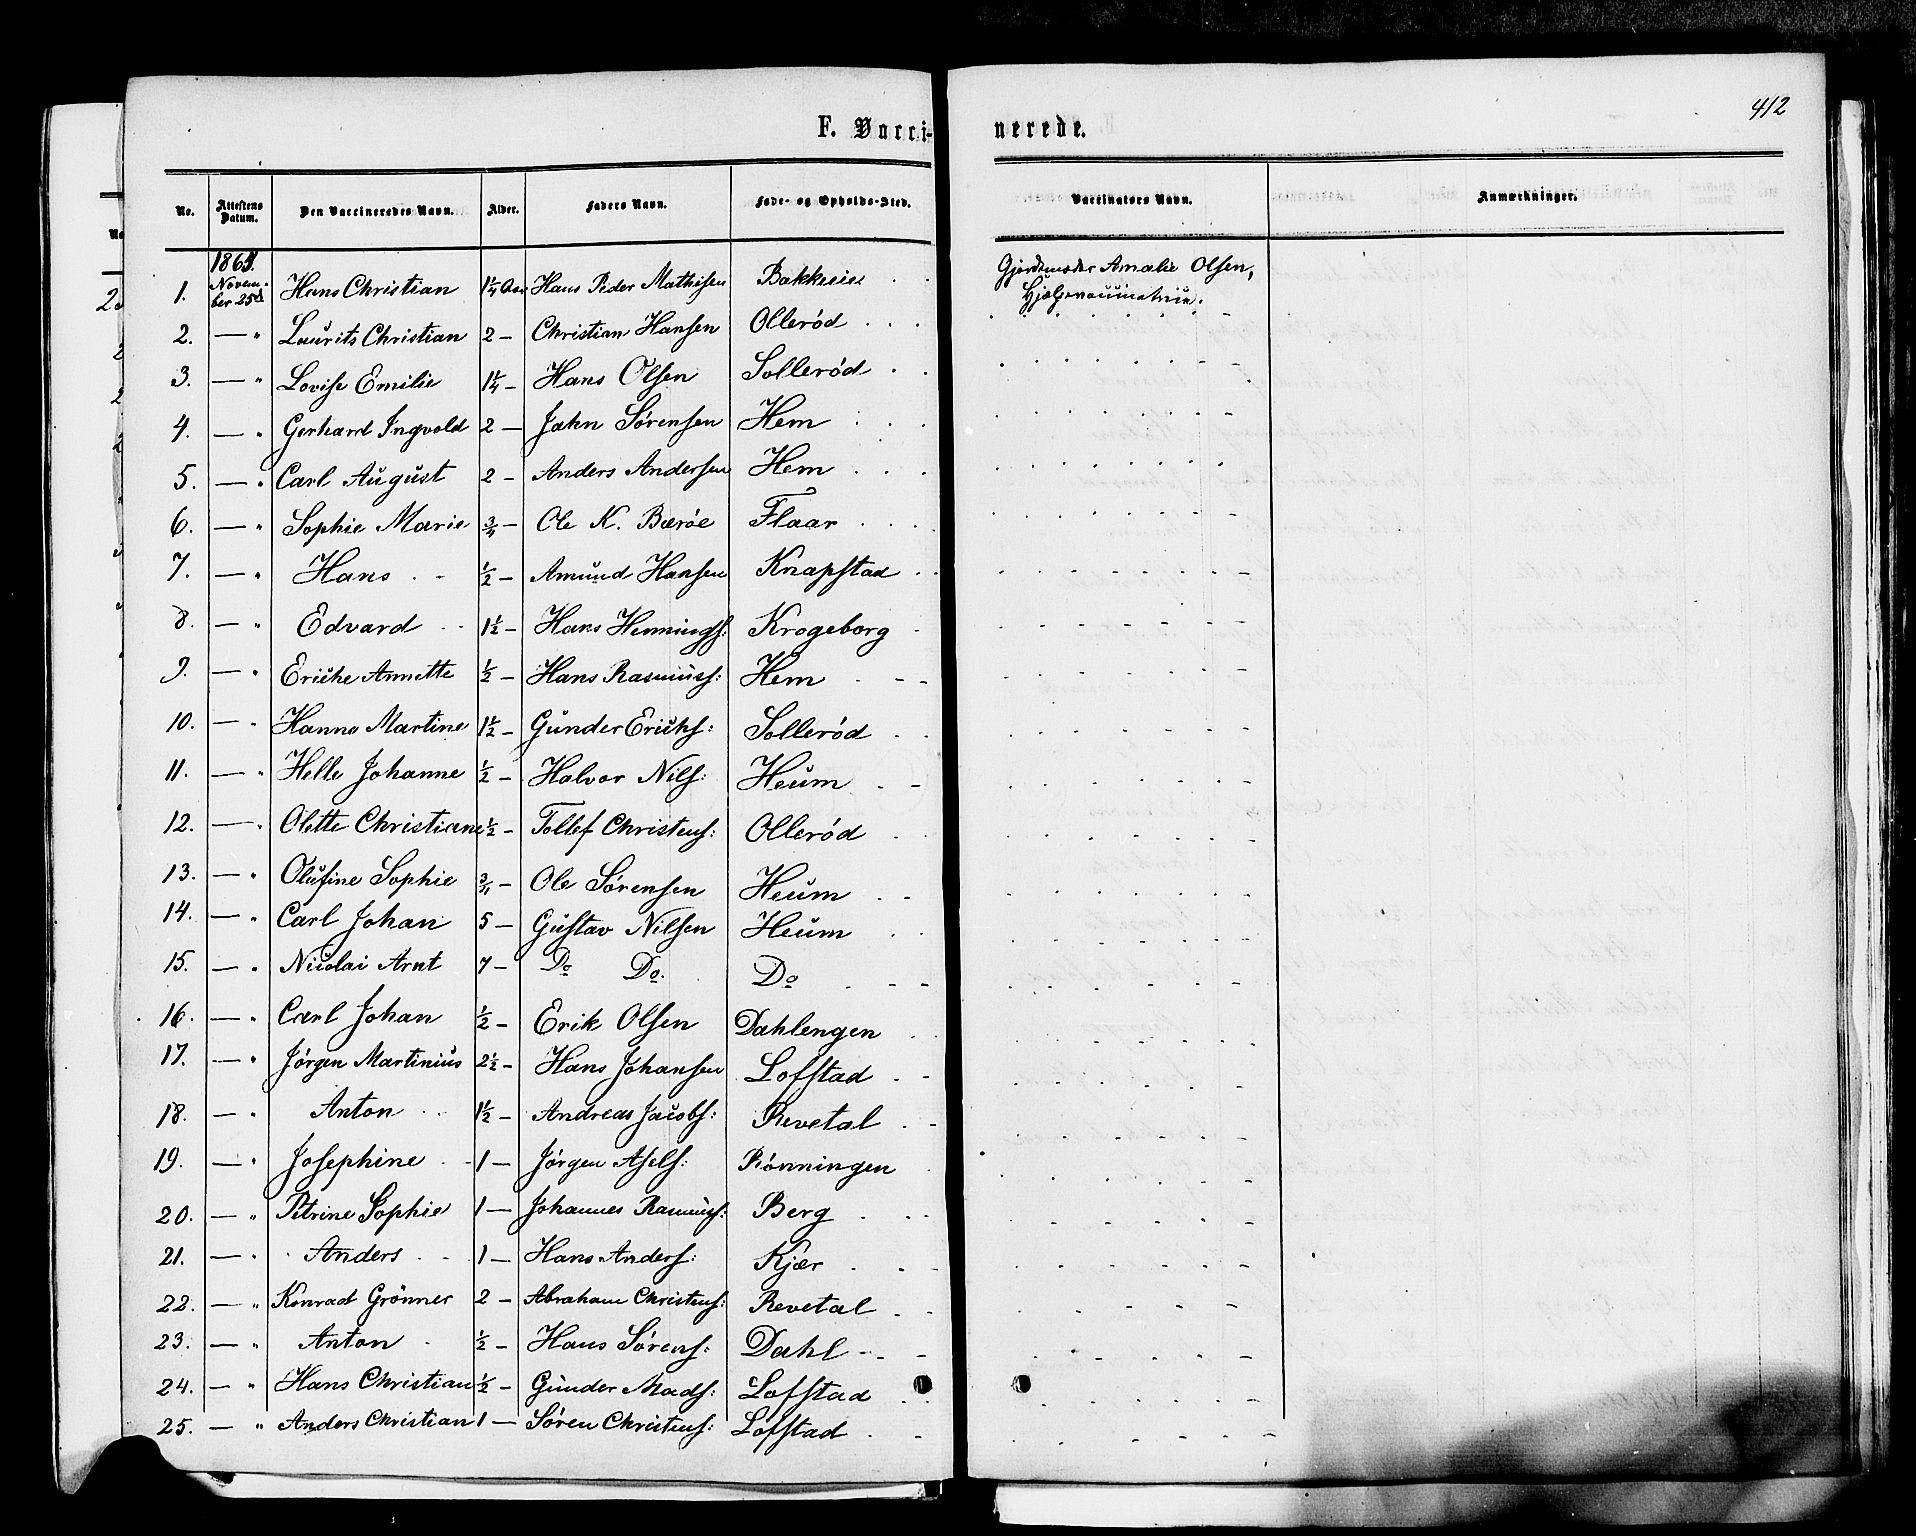 412
F. Vacci-nerede.
No. Attestens Datum. Den Vaccineredes Navn. Alder. Faders Navn. Føde- og Opholds-Sted. Vaccinators Navn. Anmærkninger.
1. Novem-ber 25de Hans Christian 1¼ Aar Hans Peder Mathisen Bakkeeie Gjordemoder Amalie Olsen, Hjælpevaccinatrice.
2. — " Laurits Christian 2 — Christian Hansen Ollerød
3. — " Lovise Emilie 1¼ — Hans Olsen Sollerød
4. — " Gerhard Ingvold 2 — Jahn Sørensen Hem
5. — " Carl August 2 — Anders Andersen Hem
6. — " Sophie Marie ¾ — Ole K. Bærøe Flaar
7. — " Hans ½ — Amund Hansen Knapstad
8. — " Edvard 1½ — Hans Hennings: Krogeborg
9. — " Eriche Annette ½ — Hans Rasmuss: Hem
10. — " Hanne Martine 1½ — Gunder Ericks: Sollerød
11. — " Helle Johanne ½ — Halvor Nils: Heum
12. — " Olette Christiane ½ — Tollef Christens: Ollerød
13. — " Olufine Sophie ¾ — Ole Sørensen Heum
14. — " Carl Johan 5 — Gustav Nilsen Heum
15. — " Nicolai Arnt 7 — Do Do. Do
16. — " Carl Johan ½ — Erik Olsen Dahlengen
17. — " Jørgen Martinius 2½ — Hans Johansen Lofstad
18. — " Anton 1½ — Andreas Jacobs: Revetal
19. — " Josephine 1 — Jørgen Asels: Rønningen
20. — " Petrine Sophie 1 — Johannes Rasmuss: Berg
21. — " Anders 1 — Hans Anders: Kjær
22. — " Konrad Grønner 2 — Abraham Christens: Revetal
23. — " Anton ½ — Hans Sørens: Dahl
24. — " Hans Christian ½ — Gunder Mads: Lofstad
25. — " Anders Christian 1 — Søren Christens: Lofstad